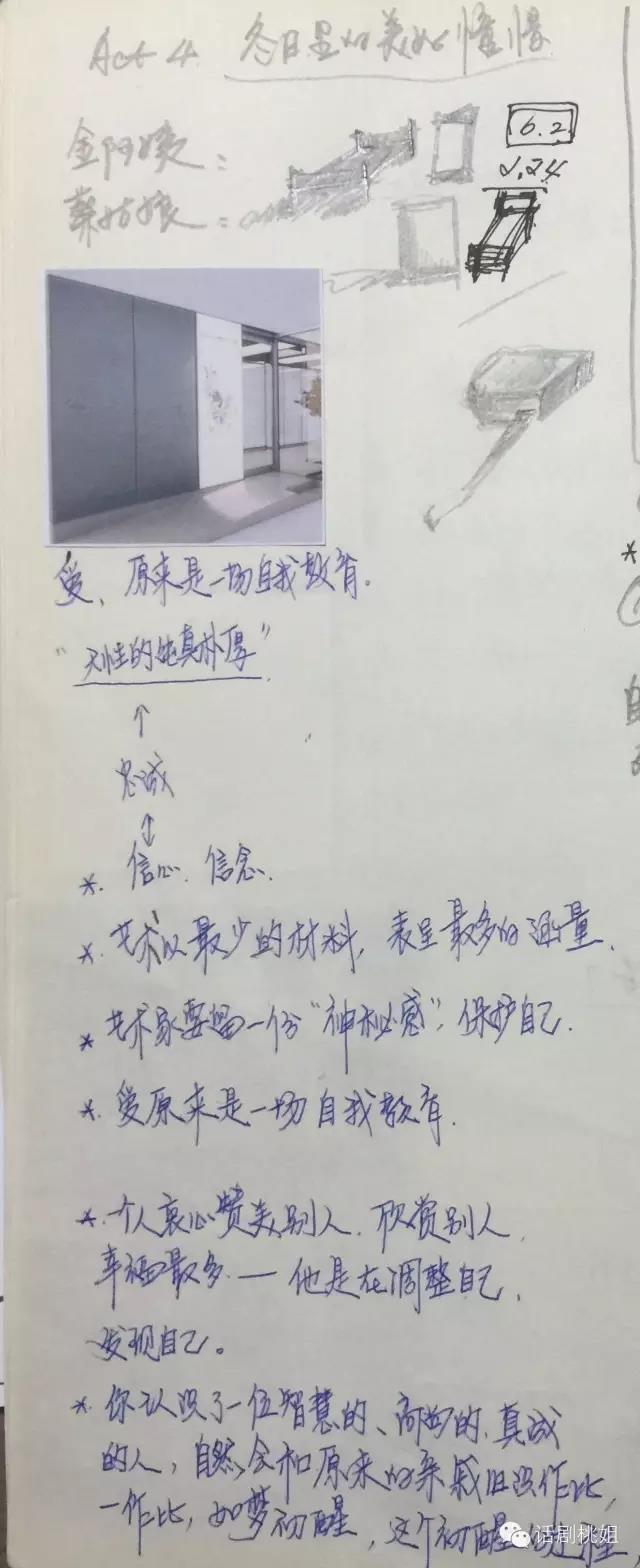 Act 4 冬日里的美好憧憬
金阿姨：
蔡姑娘：
6.2
2.24
爱，原来是一场自我教育.
“天性的纯真朴厚”
忠诚
*. 信心. 信念.
*. 艺术以最少的材料, 表呈最多的涵量.
* 艺术家要留一份“神秘感”, 保护自己.
*. 爱原来是一场自我教育.
*. 一个人衷心赞美别人. 欣赏别人,
幸福最多. — 他是在调整自己,
发现自己。
*. 你认识了一位智慧的、高妙的, 真诚
的人, 自然会和原来的亲戚旧识作比,
一作比, 如梦初醒, 这个初醒
*
自
话剧桃姐